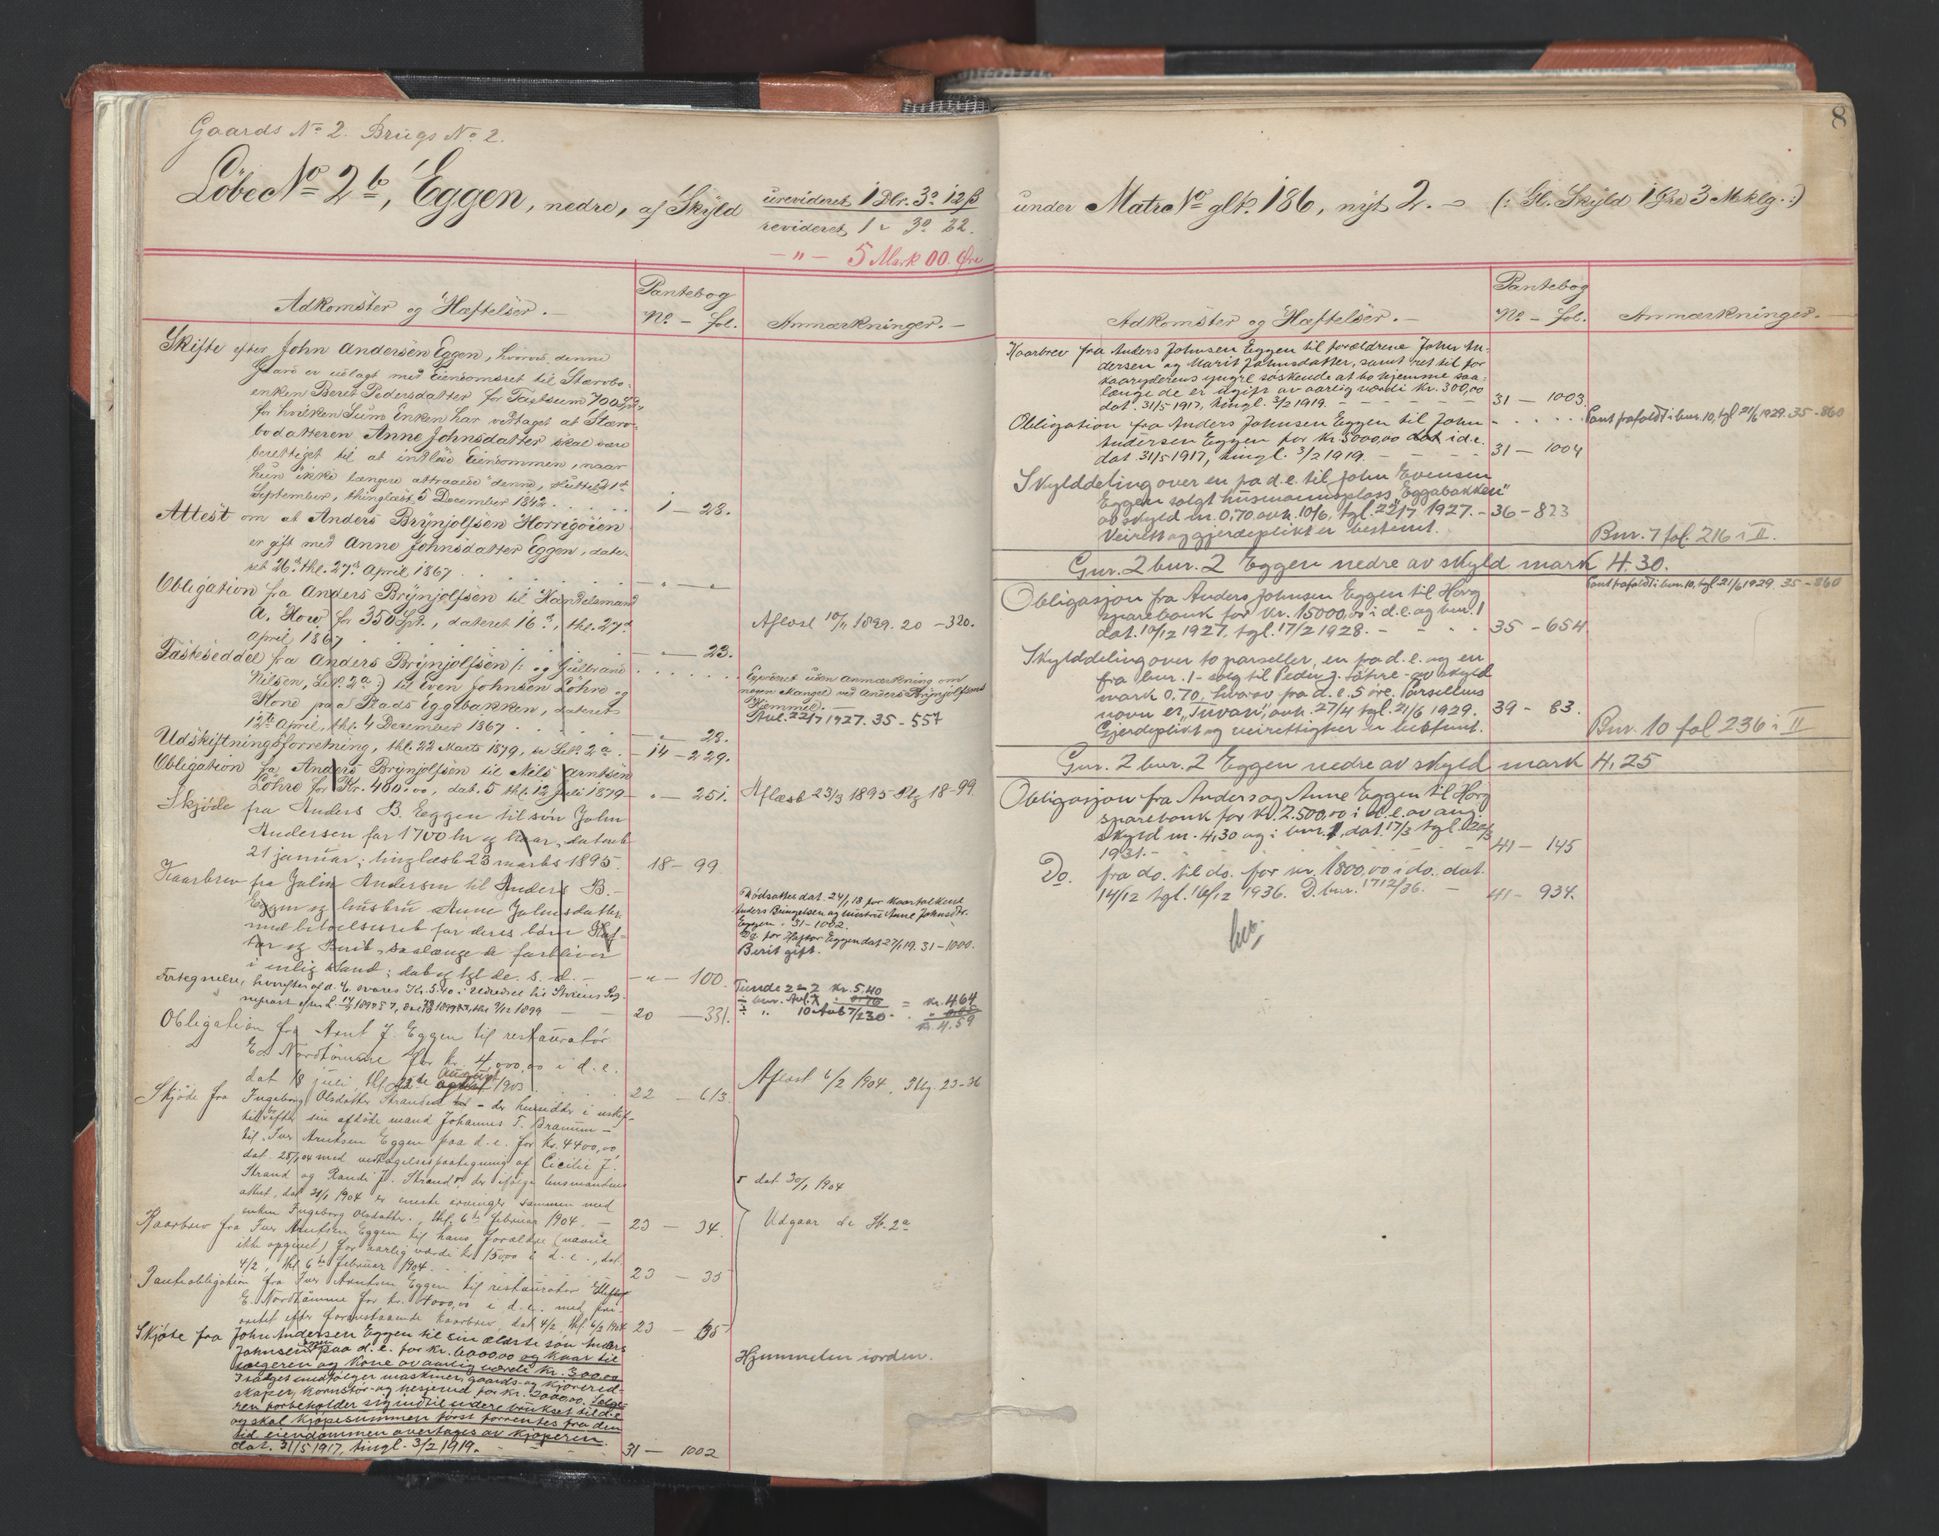 Gaards No 2. Brugs No 2.
Löbe No 2b, Eggen, nedre, af Skyld urevideret 1 Dlr. 3 o 12 ß
revideret 1 " 3 o 22.
- " - 5 Mark 00 Øre
Adkomster og Hæftelser. -
Pantebog
No - fol.
Anmærkninger. -
Skifte efter John Andersen Eggen, hvorved denne
Gaard er udlagt med Eiendomsret til Stærbo-
enken Beret Pedersdatter for Taxtsum 700 Spd,
for hvilken Sum Enken har vedtaget at Stærbo-
bodatteren Anne Johnsdatter skal være
berettiget til at indløse Eiendommen, naar
hun ikke længere attraaede denne, sluttet 1st
September, thinglæst 5 December 1842. 1 - 28.
Attest om at Anders Brynjolfsen Horrigöien
er gift med Anne Johnsdatter Eggen, date-
ret 26de, thl. 27de April 1867. " - "
Obligation fra Anders Brynjolfsen til Handelsmand
A. How for 350 Spd., dateret 16de, thl. 27de
April 1867 " - 23.
Afløst 10/11 1899. 20 - 320.
Fæsteseddel fra Anders Brynjolfsen (: og Gulbrand
Nilsen, L.N. 2a:) til Even Johnsen Löhre og
Kone paa Plads Eggebakken, dateret
12te April, thl. 4 December 1867 " - 23.
Exp
uden Anmærkning om
nogen Mangel ved Anders Brynjolfsens
Hjemmel. -
Avl. 22/7 1927. 35 - 557
Udskiftningsforretning, thl. 22 Marts 1879, se L.N. 2a. 14 - 229.
Obligation fra Anders Brynjolfsen til Nils Arntsen
Löhre for Kr. 400,00, dat. 5 thl. 12 Juli 1879 " - 251.
Aflæst 23/3 1895 Pbg 18-99.
Skjøde fra Anders B. Eggen til søn John
Andersen for 1700 kr og kaar, dateret
21 januar; tinglæst 23 marts 1895. 18 - 99.
Kaarbrev fra John Andersen til Anders B.
Eggen og hustru Anne Johnsdatter
med beboelsesret for deres børn Haf-
tor og Berit, saalænge de forbliver
i ugift Stand; dat og tgl de. s. d. - " - 100.
Dødsattes dat. 24/1 18 for kaartakeut
Anders Bryngelsen og hustru Anne Johnsdtr.
Eggen. 31 - 1002.
Do for Haftor Eggen dat 27/1 19. 31 - 1000.
Berit gift.
Fortegnelse, hvorefter af d. E. svares Kr. 5.40 i Udredsel til Støren Sog-
20 - 331.
Tiende 2-2 kr. 5.40
÷ bnr. Avl. 7 . 0.76 = kr. 4.64
÷ " 10
kr. 4.59
Obligation fra Arnt J. Eggen til restauratør
E. Nordtömme for kr. 4,000,00 i d. e.
dat 18 juli, thl 22de August 1903 22 - 613.
Afløst 6/2 1904, Pbg. 23-36
Skjøde fra Ingeborg Olsdatter Stranden - der hensidder i uskif-
tet efter sin afdøde mand Johannes T. Bramm -
til Iver Arntsen Eggen paa d. e. for kr. 4400,00,
dat. 25/1 04 med vedtagelsespaategning af Cicilie J.
Strand og Randi J. Strand, der ifølge lensmandens
attest, dat 30/1 1904 er eneste arvinger sammen med
enken Ingeborg Olsdatter., thl. 6te februar 1904. - 23 - 34.
r dat 30/1 1904
Udgaar se Lb. 2a
Kaarbrev fra Iver Arntsen Eggen til hans forældre (navne
ikke opgivet) for aarlig værdi kr 150,00 i d. e., dat.
4/2, thl 6te februar 1904. 23 - 35
Panteobligation fra Iver Arntsen Eggen til restauratør Ellef
E. Nordtömme for kr. 4000,00 i d. e. med pri-
oritet efter foranstaaende kaarbrev, dat 4/2, thl. 6/2 1904 23 - 35
Skjøte fra John Andersen Eggen til sin ældste søn Anders
Johnsen Eggen paa d. e. for kr. 6000,00 og kaar til
sælgeren og kone av aarlig værdi kr. 300,00
I salget medfølger maskiner, gaards- og kjørered-
skaper, kornstør- og hesjeved for kr. 2000,00. Sælge-
ren forbeholder sig indtil videre bruket til d. e.
og skal kjøpesummen først forrentes fra den
tid eiendommen overtages av kjøperen.
dat. 31/5 1917, tingl. 3/2 1919. 31 - 1002
Hjemmelen iorden.
8
under Matr No glt. 186, nyt 2. - (: Gl. Skyld 1 Øre 3 Mklg. :)
Adkomster og Hæftelser. -
Pantebog
No - fol.
Anmærkninger. -
Kaarbrev fra Anders Johnsen Eggen til forældrene John An-
dersen og Marit Johnsdatter, samt ret til for
kaaryderens yngre søskende at bo hjemme saa-
længe de er ugift av aarlig værdi kr. 300,00
dat. 31/5 1917, tingl. 3/2 1919. 31 - 1003.
Obligation fra Anders Johnsen Eggen til John
Andersen Eggen for kr. 5000,00 dat i d. e.
dat 31/5 1917, tingl. 3/2 1919. 31 - 1004
Pant frafaldt i bnr. 10, tgl 21/6 1929. 35 - 860
Skylddeling over en fra d. e. til John Evensen
Eggen solgt husmannsplass "Eggabakken"
av skyld m. 0,70 avh. 10/6, tgl. 22/7 1927. - 36 - 823
Veirett og gjerdeplikt er bestemt.
Bnr. 7 fol. 216 i II.
Gnr. 2 bnr. 2 Eggen nedre av skyld mark 4,30.
Obligasjon fra Anders Johnsen Eggen til Horg
sparebank for kr. 15000,00 i d. e. og bnr. 1
dat. 10/12 1927. tgl. 17/2 1928. 35 - 654
Pant frafaldt i bnr. 10, tgl 21/6 1929. 35 - 860
Skylddeling over to parseller, en fra d. e. og en
fra bnr. 1 - solgt til Peder J. Løhre - av skyld
mark 0,70, hvorav fra d. e. 5 øre. Parsellens
navn er "Tuvan", avh. 27/4 tgl. 21/6 1929. 39 - 83.
Gjerdeplikt og veirettigheter er bestemt.
Bnr. 10 fol 236 i II
Gnr. 2 bnr. 2 Eggen nedre av skyld mark 4,25
Obligasjon fra Anders og Anne Eggen til Horg
sparebank for kr. 2.500,00 i d. e. av ang.
skyld m. 4,30 og i bnr. 1, dat. 17/3 tgl. 20/3
1931. - 41 - 145
Do. fra do. til ds. for kr. 1800,00 i do. dat.
14/12 tgl. 16/12 1936. D.bnr. 1712/36. 41 - 934.